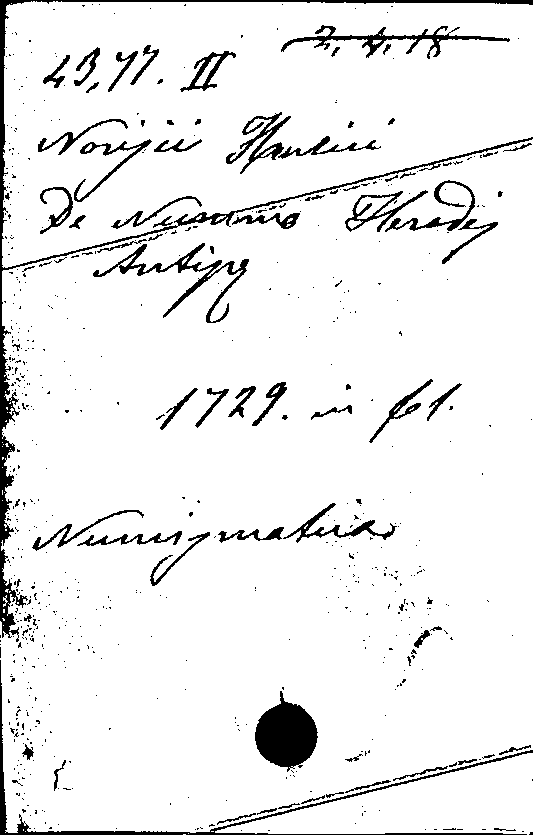 2, 4, 18
43,77. II
Norijii Henrici
De Nummo Herodis
Antipę
1729. in fol.
Numismatica